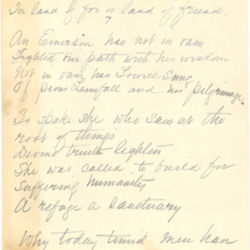 In land of for a land of friend.
An Emerson has not in vain
Lighted our path with his wisdom
Not in vain has Lowell Sung
Of Sir Launfall and his pilgrimage
To she who saw at the
root of things
Divine truth
She was called to build for
Suffering humanity
A refuge a Sanctuary
Why today timid men have